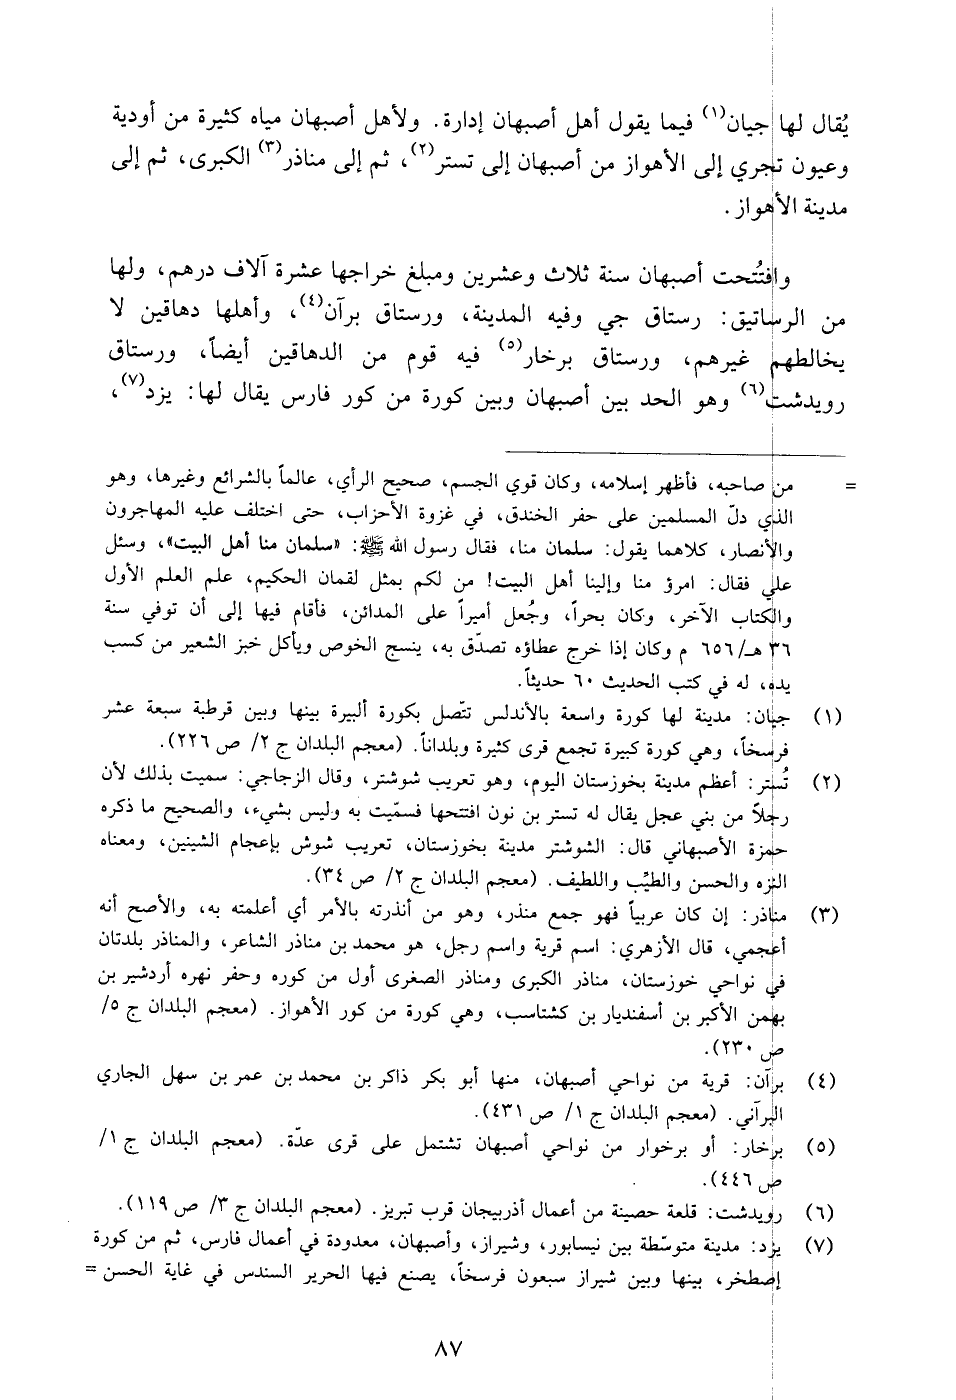 يُقال لها جيان(١) فيما يقول أهل أصبهان إدارة. ولأهل أصبهان مياه كثيرة من أودية
وعيون تجري إلى الأهواز من أصبهان إلى تستر(٢)، ثم إلى مناذر(٣) الكبرى، ثم إلى
مدينة الأهواز.
وافتُتحت أصبهان سنة ثلاث وعشرين ومبلغ خراجها عشرة آلاف درهم، ولها
من الرساتيق: رستاق جي وفيه المدينة، ورستاق برآن(٤)، وأهلها دهاقين لا
يخالطهم غيرهم، ورستاق برخار(٥) فيه قوم من الدهاقين أيضاً، ورستاق
رويدشت(٦) وهو الحد بين أصبهان وبين كورة من كور فارس يقال لها: يزد(٧)،
= من صاحبه، فأظهر إسلامه، وكان قوي الجسم، صحيح الرأي، عالماً بالشرائع وغيرها، وهو
الذي دلّ المسلمين على حفر الخندق، في غزوة الأحزاب، حتى اختلف عليه المهاجرون
والأنصار، كلاهما يقول: سلمان منا، فقال رسول الله ﷺ: «سلمان منا أهل البيت»، وسئل
علي فقال: امرؤ منا وإلينا أهل البيت! من لكم بمثل لقمان الحكيم، علم العلم الأول
والكتاب الآخر، وكان بحراً، وجُعل أميراً على المدائن، فأقام فيها إلى أن توفي سنة
٣٦ هـ/ ٦٥٦ م وكان إذا خرج عطاؤه تصدّق به، ينسج الخوص ويأكل خبز الشعير من كسب
يده، له في كتب الحديث ٦٠ حديثاً.
(١) جيان: مدينة لها كورة واسعة بالأندلس تتّصل بكورة ألبيرة بينها وبين قرطبة سبعة عشر
فرسخاً، وهي كورة كبيرة تجمع قرى كثيرة وبلداناً. (معجم البلدان ج ٢/ ص ٢٢٦).
(٢) تُستر: أعظم مدينة بخوزستان اليوم، وهو تعريب شوشتر، وقال الزجاجي: سميت بذلك لأن
رجلاً من بني عجل يقال له تستر بن نون افتتحها فسمّيت به وليس بشيء، والصحيح ما ذكره
حمزة الأصبهاني قال: الشوشتر مدينة بخوزستان، تعريب شوش بإعجام الشينين، ومعناه
النزه والحسن والطيِّب واللطيف. (معجم البلدان ج ٢/ ص ٣٤).
(٣) مناذر: إن كان عربياً فهو جمع منذر، وهو من أنذرته بالأمر أي أعلمته به، والأصح أنه
أعجمي، قال الأزهري: اسم قرية واسم رجل، هو محمد بن مناذر الشاعر، والمناذر بلدتان
في نواحي خوزستان، مناذر الكبرى ومناذر الصغرى أول من كوره وحفر نهره أردشير بن
بهمن الأكبر بن أسفنديار بن كشتاسب، وهي كورة من كور الأهواز. (معجم البلدان ج ٥/
ص ٢٣٠).
(٤) برآن: قرية من نواحي أصبهان، منها أبو بكر ذاكر بن محمد بن عمر بن سهل الجاري
البرآني. (معجم البلدان ج ١/ ص ٤٣١).
(٥) برخار: أو برخوار من نواحي أصبهان تشتمل على قرى عدّة. (معجم البلدان ج ١/
ص ٤٤٦).
(٦) رويدشت: قلعة حصينة من أعمال أذربيجان قرب تبريز. (معجم البلدان ج ٣/ ص ١١٩).
(٧) يزد: مدينة متوسّطة بين نيسابور، وشيراز، وأصبهان، معدودة في أعمال فارس، ثم من كورة
إصطخر، بينها وبين شيراز سبعون فرسخاً، يصنع فيها الحرير السندس في غاية الحسن =
٨٧